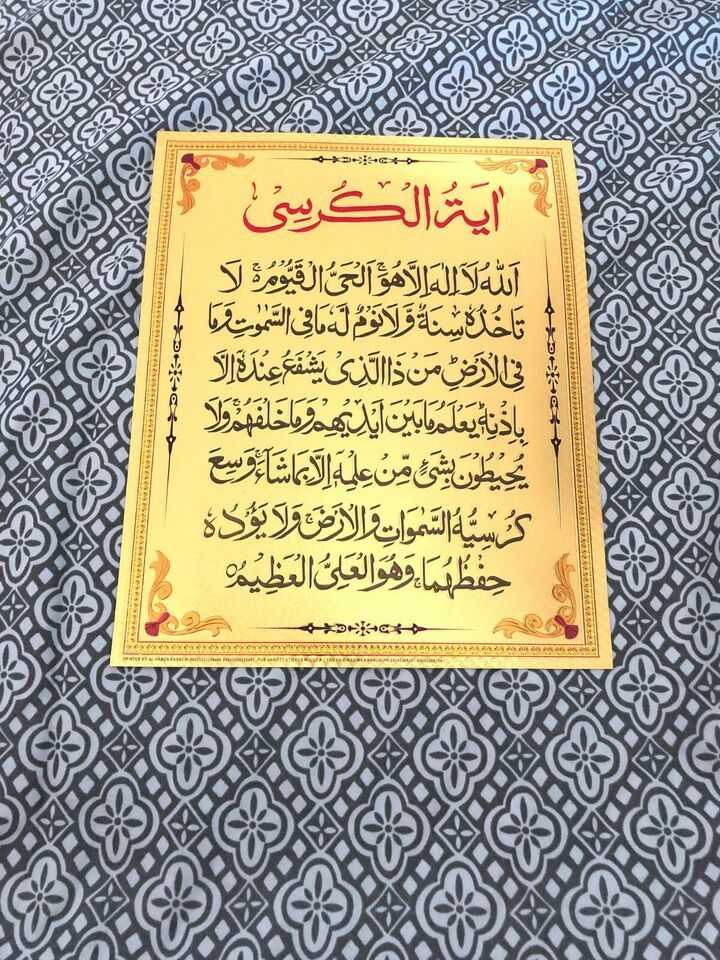 اٰیَةُ الْکُرْسِی
اَللّٰهُ لَاۤ اِلٰهَ اِلَّا هُوَۚ اَلْحَیُّ الْقَیُّوْمُ ۚ لَا
تَاْخُذُهٗ سِنَةٌ وَّلَا نَوْمٌ لَهٗ مَا فِی السَّمٰوٰتِ وَمَا
فِی الْاَرْضِ مَنْ ذَا الَّذِیْ یَشْفَعُ عِنْدَهٗۤ اِلَّا
بِاِذْنِهٖ یَعْلَمُ مَا بَیْنَ اَیْدِیْهِمْ وَمَا خَلْفَهُمْ ۚ وَلَا
یُحِیْطُوْنَ بِشَیْءٍ مِّنْ عِلْمِهٖۤ اِلَّا بِمَا شَآءَ ۚ وَسِعَ
کُرْسِیُّهُ السَّمٰوَاتِ وَالْاَرْضَ ۚ وَلَا یَؤُدُهٗ
حِفْظُهُمَا ۚ وَهُوَ الْعَلِیُّ الْعَظِیْمُ ○
PRINTED BY: AL HAMZA KARACHI